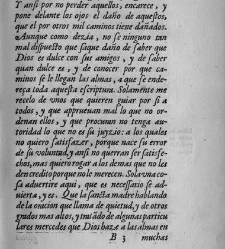 Y ansi por no perder aquellos, encarece, y
pone delante los ojos el daño de aquestos,
que el por otros mil caminos tiene dañados.
Aunque como dezia, no se ninguno tan
mal dispuesto que saque daño de saber que
Dios es dulce con sus amigos, y de saber
quan dulce es, y de conocer por que ca-
minos se le llegan las almas, a que se ende-
reça toda aquesta escriptura. Solamente me
recelo de vnos que quieren guiar por si a
todos, y que aprueuan mal lo que no or-
denan ellos, y que procuran no tenga au-
toridad lo que no es su juyzio: a los quales
no quiero satisfazer, porque nace su error
de su voluntad, y ansi no querran ser satisfe-
chos, mas quiero rogar a los demas que no les
den credito porque no le merecen. Sola vna co-
sa aduertire aqui, que es necessario se ad-
uierta, y es. Que la sancta madre hablando
de la oracion que llama de quietud, y de otros
grados mas altos, y tratãdo de algunas particu
lares mercedes que Dios haze a las almas en
B 3 muchas